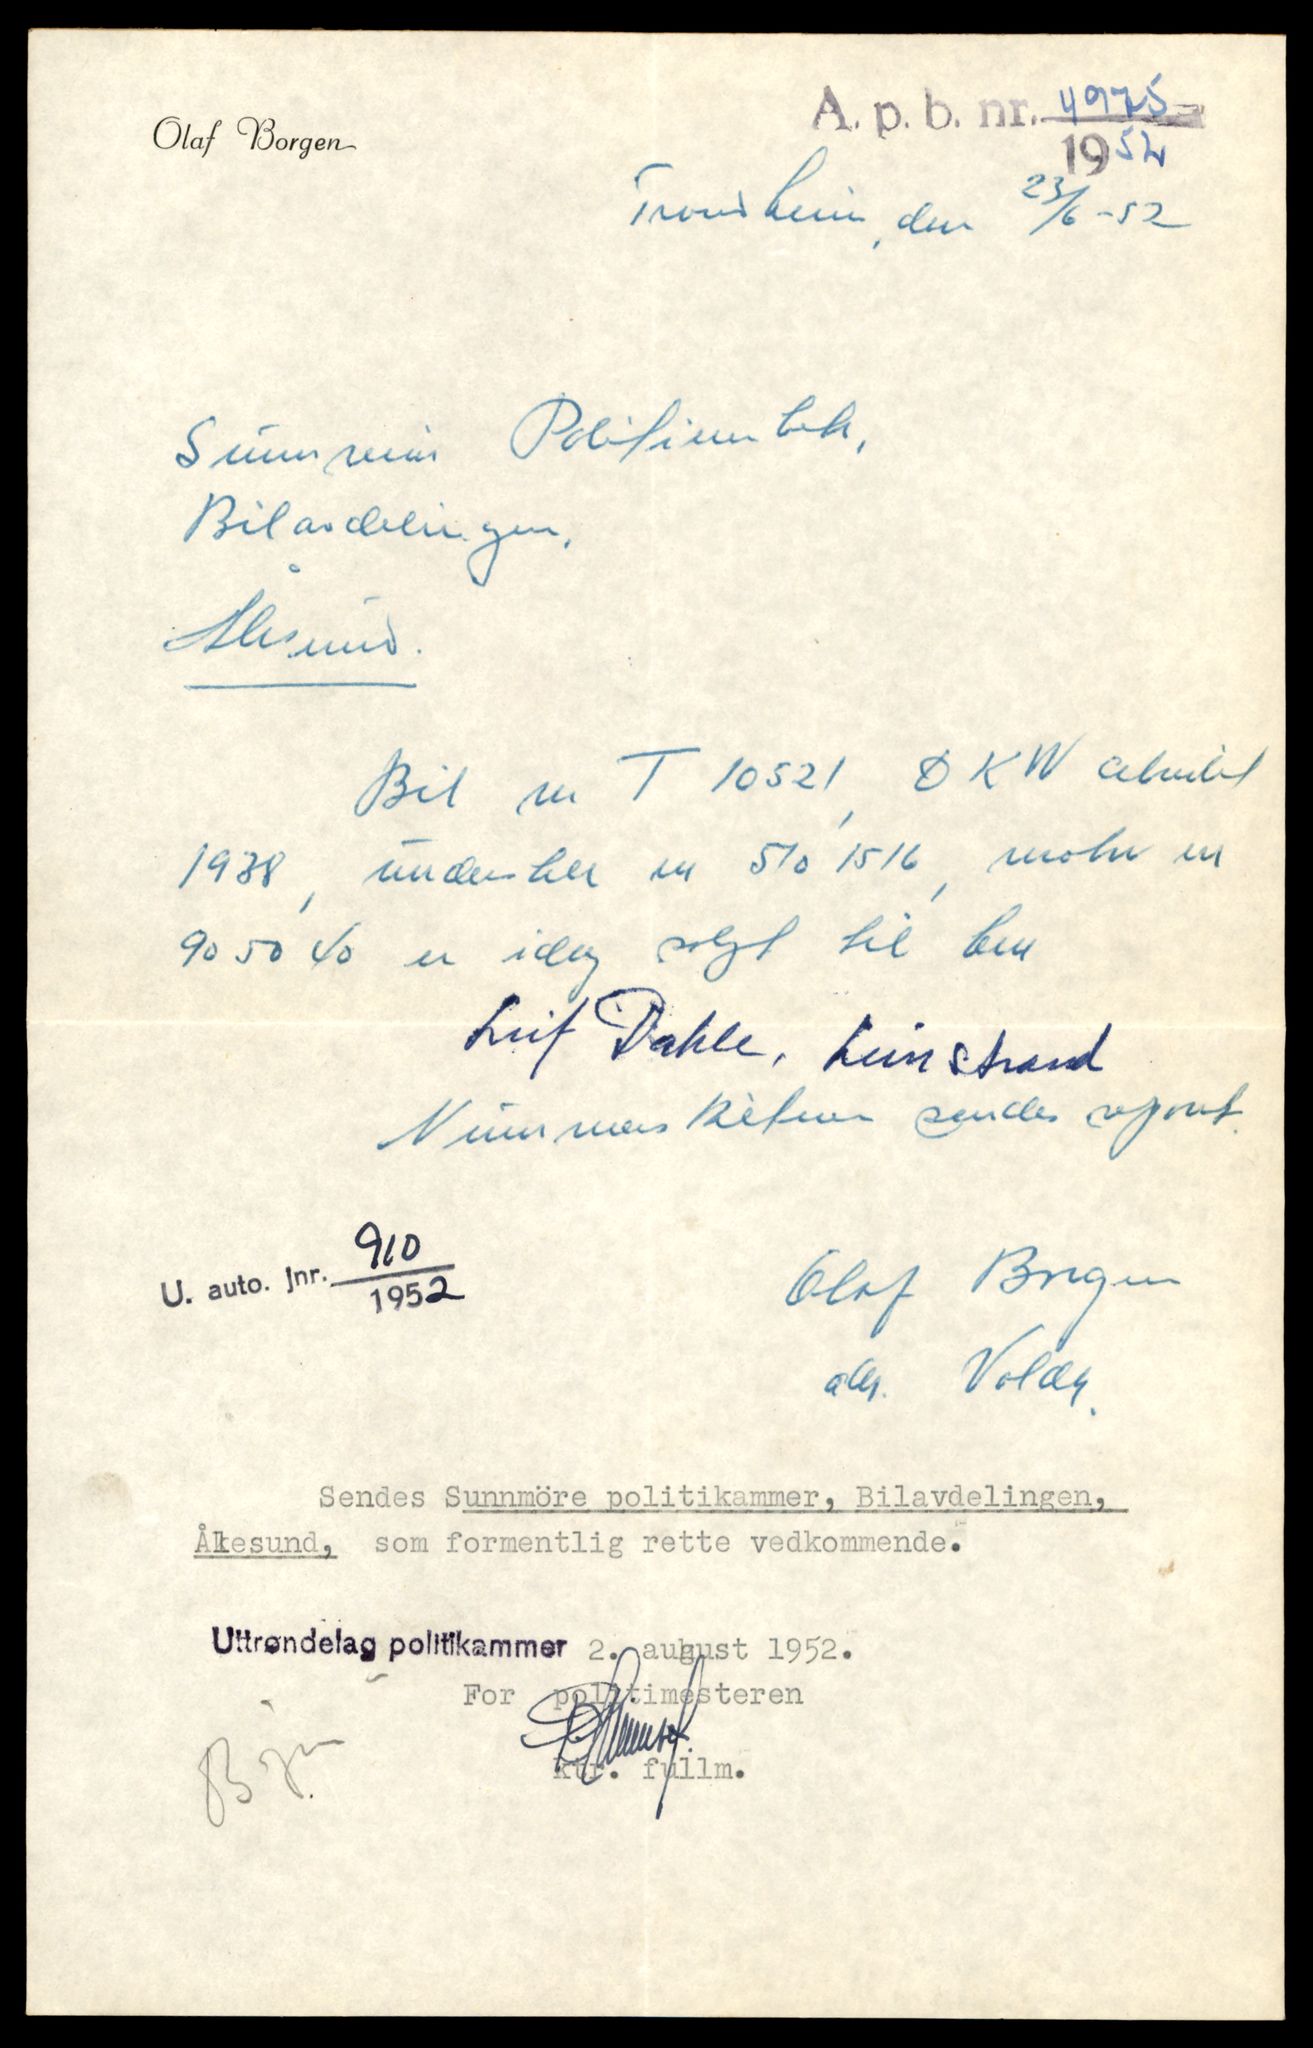 Olaf Borgen
A. p. b. nr. 4975
1952
Trondheim, den 23/6-52
Sunnmøre
Bilavdelingen,
Ålesund.
Bil nr T 10521, DKW
1938, understell nr 5101516, motor nr
905040 er idag solgt til herr
Leif Dahle, Leinstrand
Nummerskiltene sendes
U. auto. Jnr. 910
1952
Olaf Borgen
adr. Volda.
Sendes Sunnmöre politikammer, Bilavdelingen,
Ålesund, som formentlig rette vedkommende.
Uttrøndelag politikammer 2. august 1952.
For politimesteren
ktr. fullm.